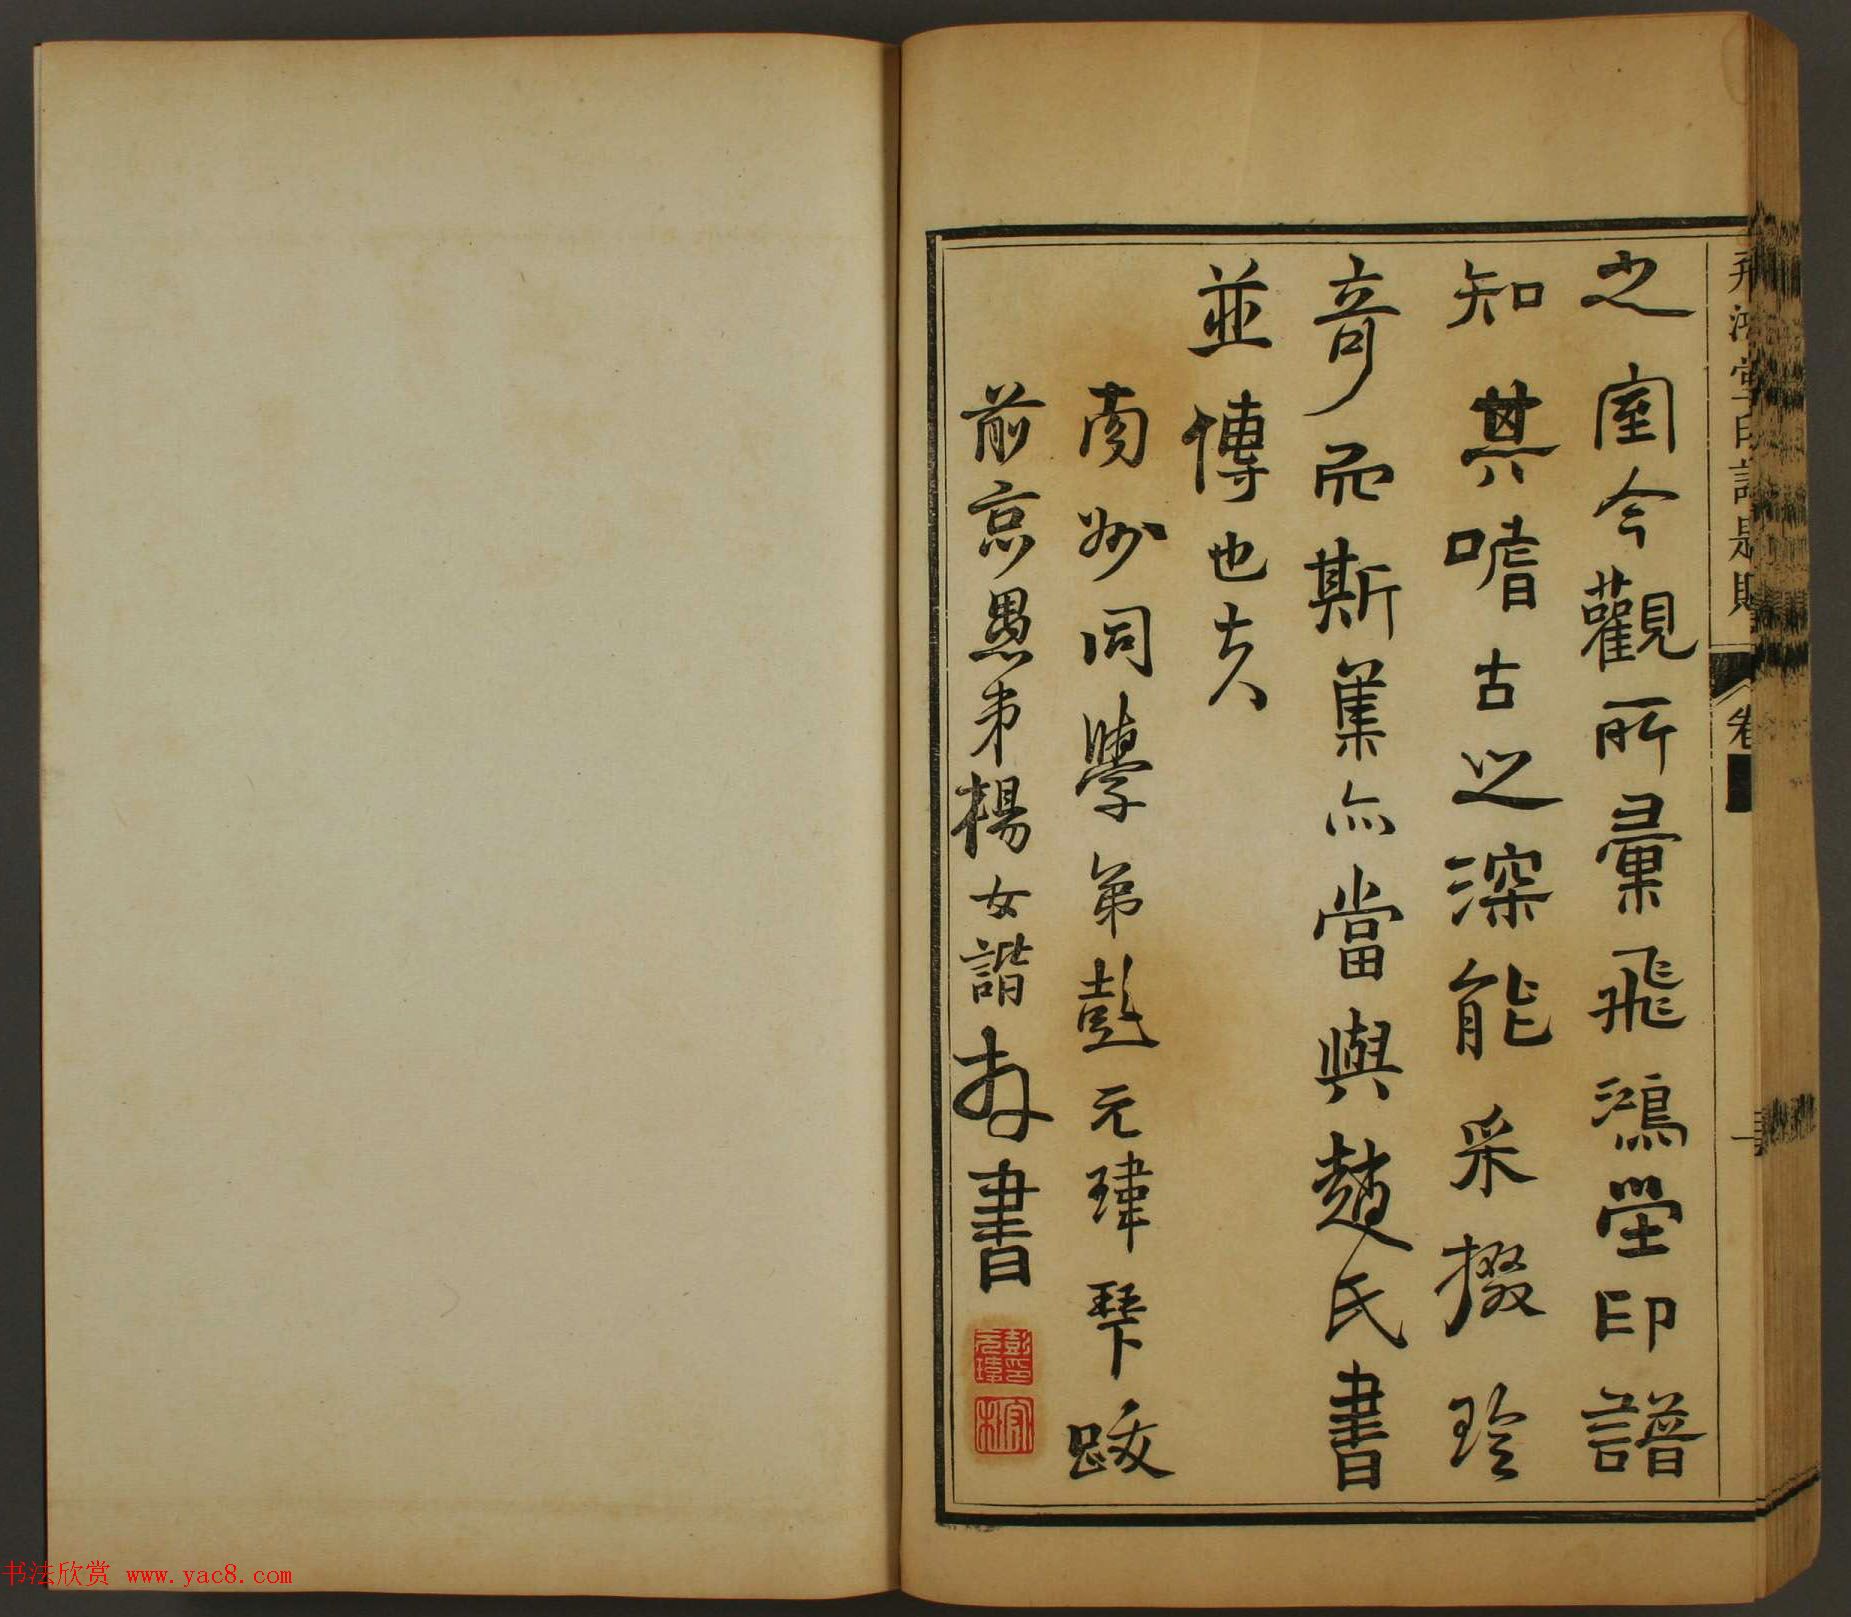 飛鴻堂印譜
卷
之室今觀所彙飛鴻堂印譜
知其嗜古之深能采掇珍
奇而斯集亦當與趙氏書
並傳也夫
南州同學弟彭元瑋拜跋
前京愚弟楊女諧拜書
彭印元瑋
书法欣赏 www.yac8.com